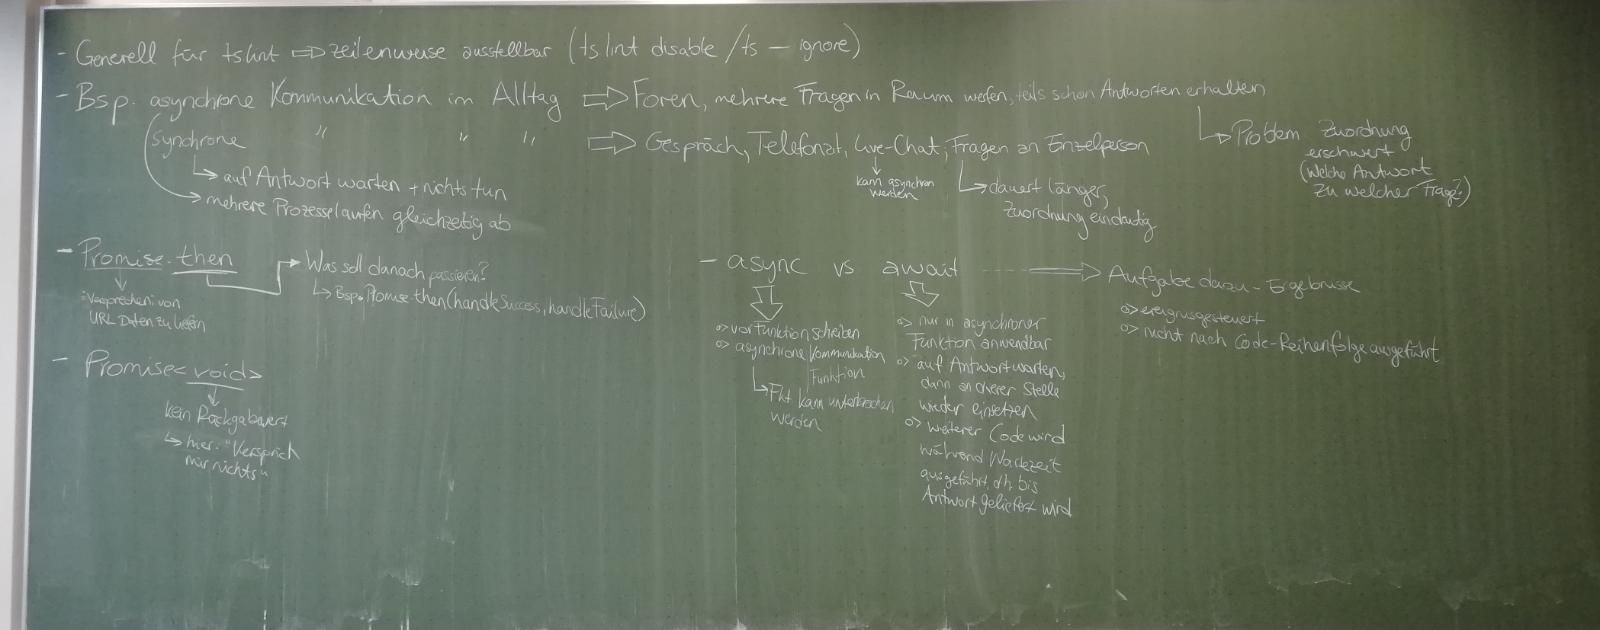 - Generell für tslint => zeilenweise ausstellbar (tslint disable / ts - ignore)
- Bsp. asynchrone Kommunikation im Alltag => Foren, mehrere Fragen in Raum werfen, teils schon Antworten erhalten
↳ Problem Zuordnung
erschwert
(Welche Antwort
zu welcher Frage?)
synchrone " " " => Gespräch, Telefonat, Live-Chat, Fragen an Einzelperson
↳ auf Antwort warten + nichts tun
→ mehrere Prozesse laufen gleichzeitig ab
↓
kann asynchron
werden
↳ dauert länger,
Zuordnung eindeutig
- Promise.then
↓
"Versprechen: von
URL Daten zu liefern
→ Was soll danach passieren?
↳ Bsp. Promise.then(handleSuccess, handleFailure)
- Promise<void>
↓
kein Rückgabewert
↳ hier: "Versprich
mir nichts"
- async vs await ---- => Aufgabe dazu - Ergebnisse
o> ereignisgesteuert
o> nicht nach Code-Reihenfolge ausgeführt
o> vor Funktion schreiben
o> asynchrone Kommunikation
Funktion
↳ Fkt kann unterbrochen
werden
o> nur in asynchroner
Funktion anwendbar
o> auf Antwort warten,
dann an dieser Stelle
wieder einsetzen
o> weiterer Code wird
während Wartezeit
ausgeführt d.h. bis
Antwort geliefert wird